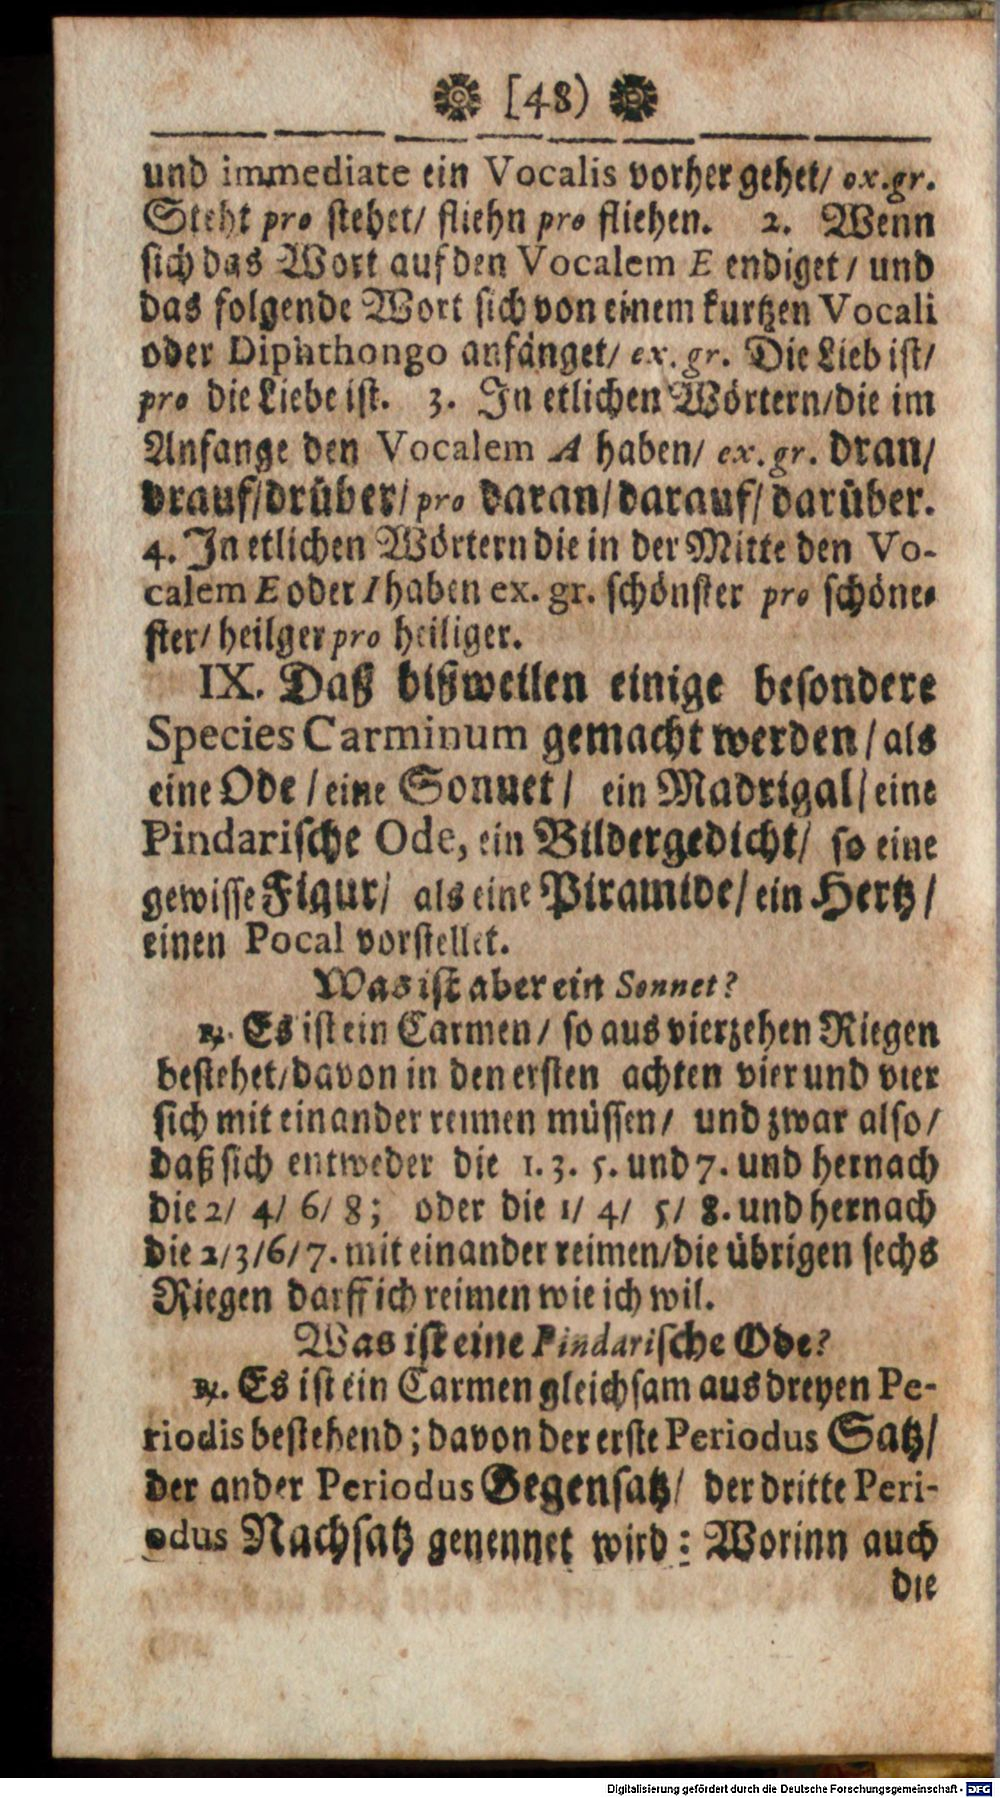 [48)
und immediate ein Vocalis vorher gehet/ ex.gr.
Steht pro stehet/ fliehn pro fliehen. 2. Wenn
sich das Wort auf den Vocalem E endiget/ und
das folgende Wort sich von einem kurtzen Vocali
oder Diphthongo anfänget/ ex. gr. Die Lieb ist/
pro die Liebe ist. 3. In etlichen Wörtern/die im
Anfange den Vocalem A haben/ ex. gr. dran/
drauf/drüber/pro daran/darauf/darüber.
4. In etlichen Wörtern die in der Mitte den Vo-
calem E oder I haben ex. gr. schönster pro schöne-
ster/ heilger pro heiliger.
IX. Daß bißweilen einige besondere
Species Carminum gemacht werden/als
eine Ode/eine Sonnet/ ein Madrigal/eine
Pindarische Ode, ein Bildergedicht/ so eine
gewisse Figur/ als eine Piramide/ein Hertz/
einen Pocal vorstellet.
Was ist aber ein Sonnet?
℞. Es ist ein Carmen/ so aus vierzehen Riegen
bestehet/davon in den ersten achten vier und vier
sich mit einander reimen müssen/ und zwar also/
daß sich entweder die 1. 3. 5. und 7. und hernach
die 2/ 4/ 6/ 8; oder die 1/ 4/ 5/ 8. und hernach
die 2/3/6/7. mit einander reimen/die übrigen sechs
Riegen darff ich reimen wie ich wil.
Was ist eine Pindarische Ode?
℞. Es ist ein Carmen gleichsam aus dreyen Pe-
riodis bestehend; davon der erste Periodus Satz/
der ander Periodus Gegensatz/ der dritte Peri-
odus Nachsatz genennet wird: Worinn auch
die
Digitalisierung gefördert durch die Deutsche Forschungsgemeinschaft - DFG